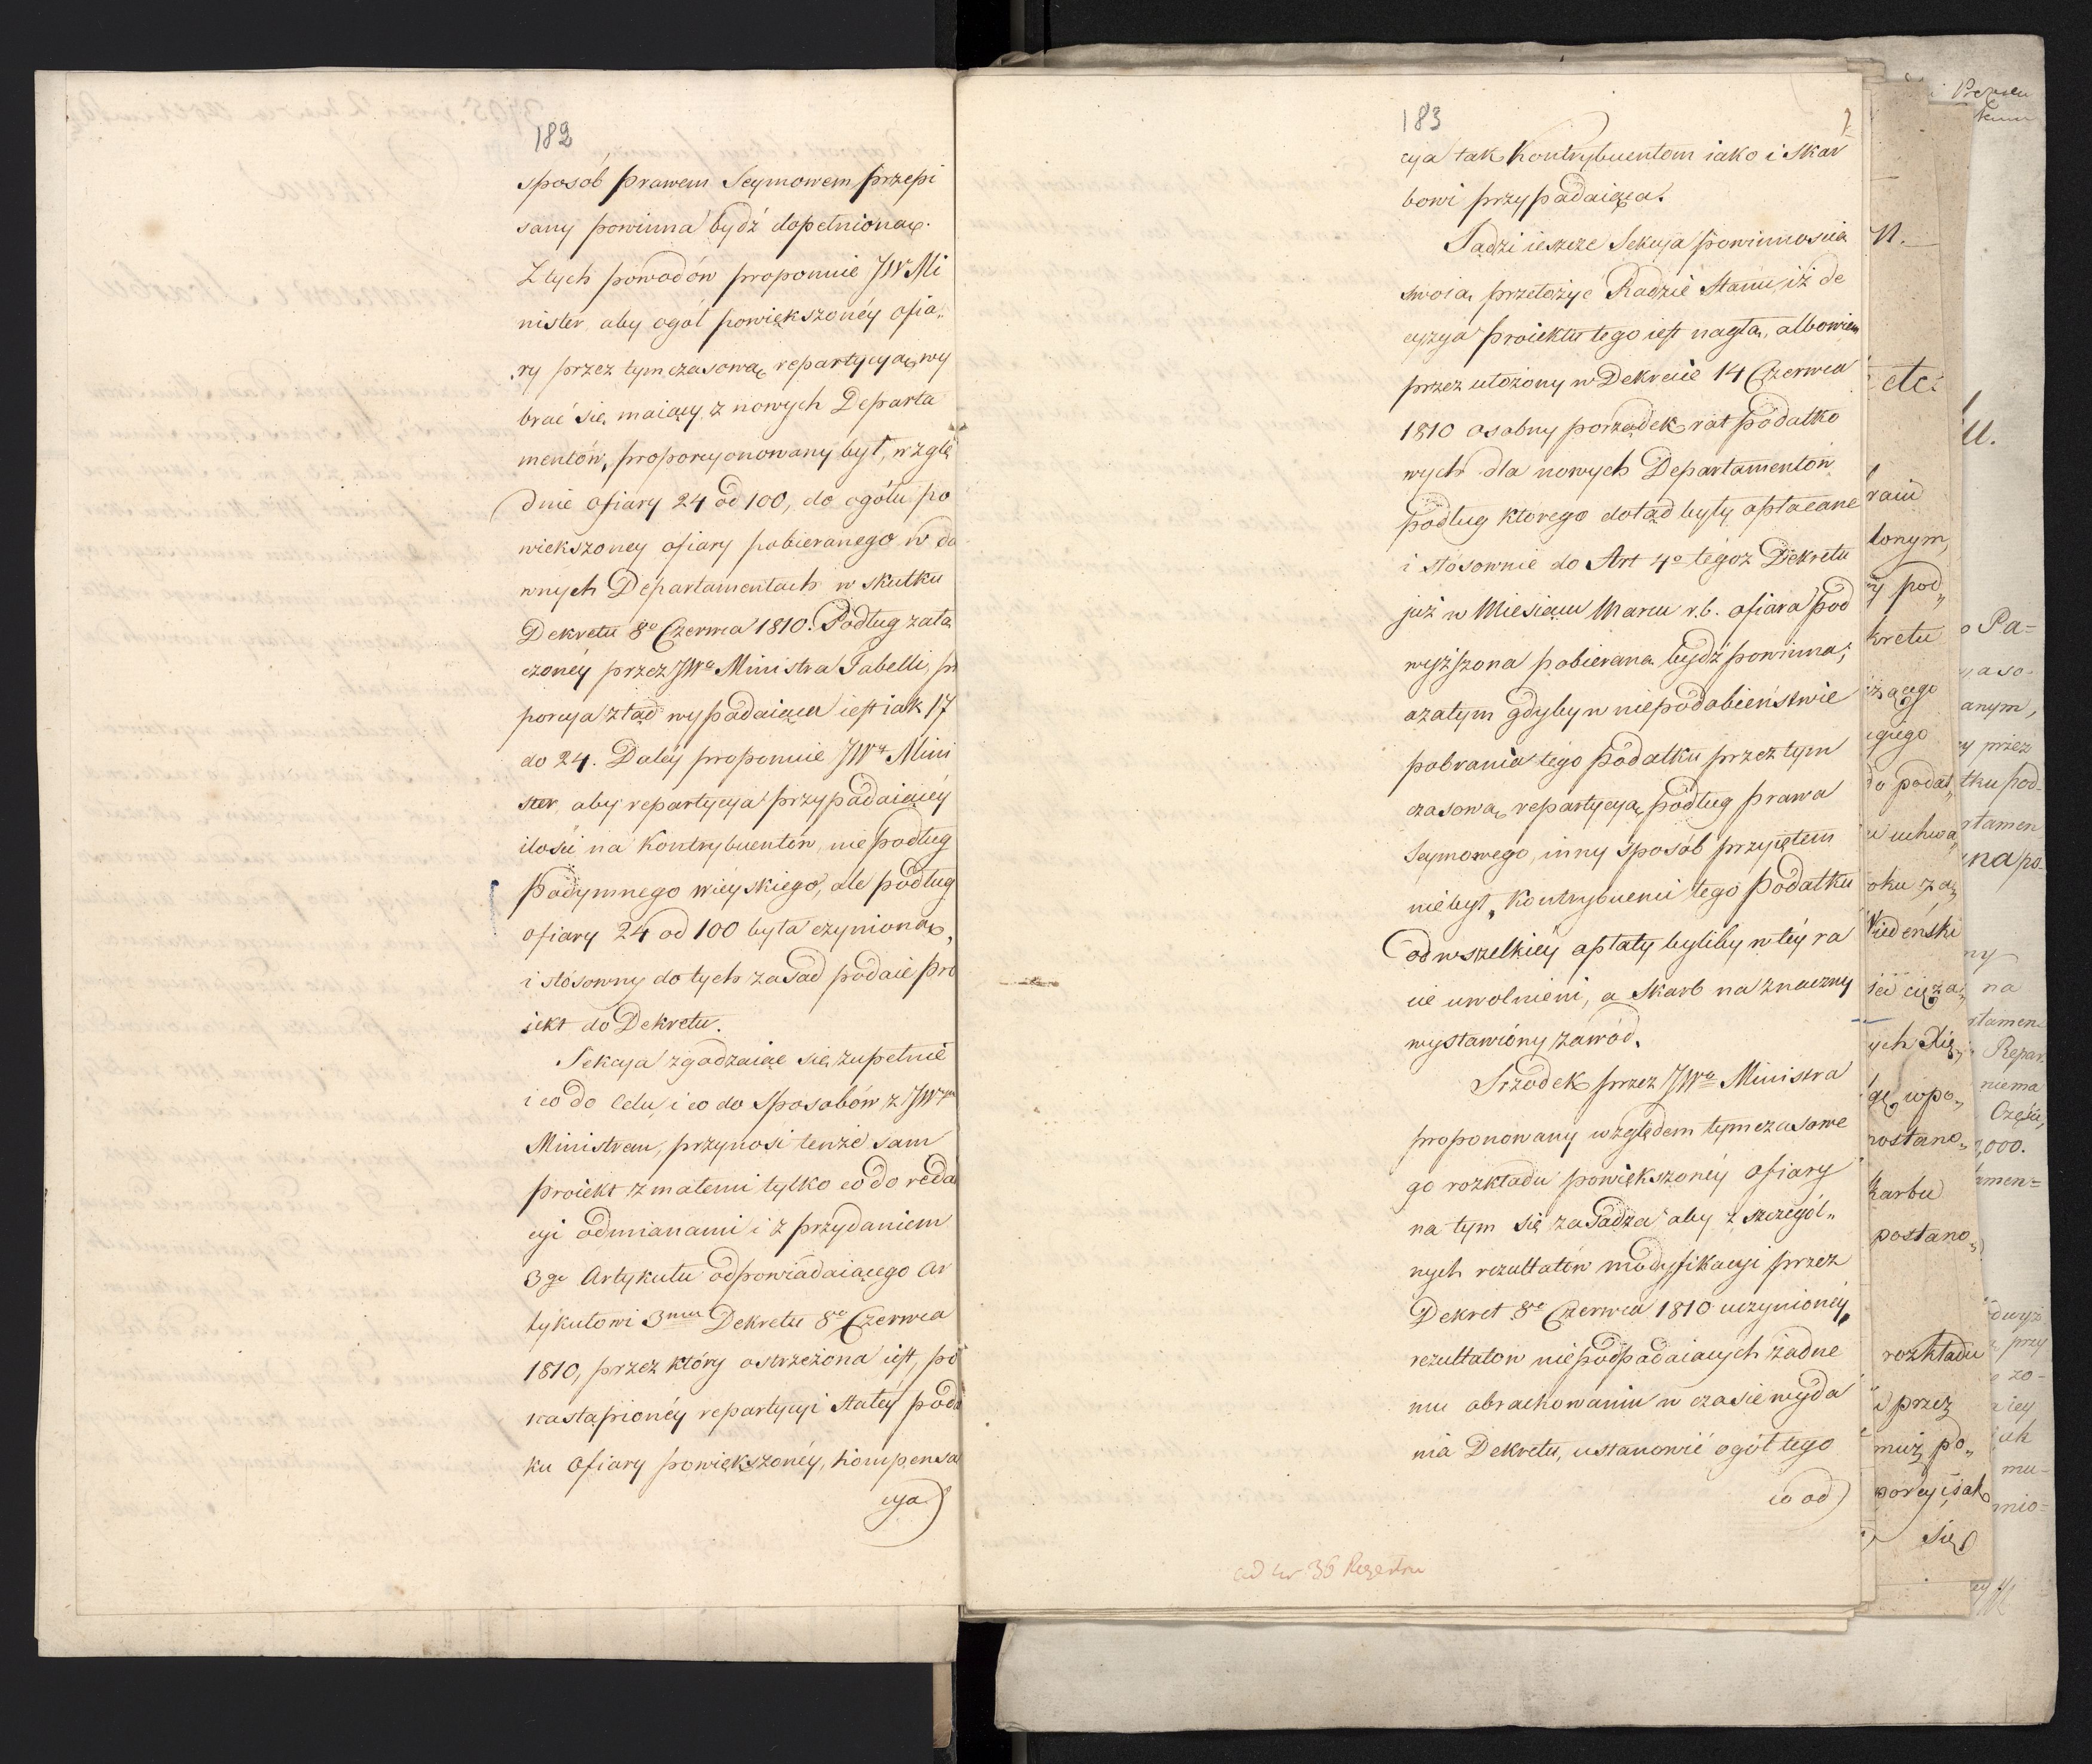 182
sposób prawem Seymowem przepi
sany powinna bydź dopełnioną.
Z tych powodów proponuie JWr Mi
nister, aby ogół powiększonéy ofia„
ry przez tymczasową repartycyą wy
brać się maiący z nowych Departa
mentów, proporcyonowany był, wzglę
dnie ofiary 24 od 100, do ogółu po
wiekszoney ofiary pobieranego w da
wnych Departamentach w skutku
Dekretu 8o Czerwca 1810. Podług załą
czonéy przez JWo Ministra Tabelli, pr
porcya ztąd wypadaiąca iest iak 17
do 24. Daléy proponuie JWr Mini
ster, aby repartycya przypadaiącéy
ilości na Kontrybuentów, nie podług
Podymnego wiéyskiego, ale podług
ofiary 24 od 100 była czynioną,
i stósowny do tych zasad podaie pro
iekt do Dekretu.
Sekcya zgadzaiąc się zupełnie
i co do celu, i co do sposobów z JWym
Ministrem, przynosi tenże sam
proiekt z małemi tylko co do reda
cyi odmianami i z przydaniem
3go Artykułu odpowiadaiącego Ar
tykułowi 3mu Dekretu 8o Czerwca
1810, przez który ostrzeżona iest, po
nastąpionéy repartycyi stałéy poda
ku Ofiary powiększonéy, kompensa
cya
183
cya tak Kontrybuentom iako i Skar
bowi przypadaiąca.
Sądzi ieszcze Sekcya powinnością
swoią przełożyć Radzie Stanu, iż de
cyzya proiektu tego iest nagłą, albowiem
przez ułożony w Dekrecie 14 Czerwca
1810 osobny porządek rat podatko
wych dla nowych Departamentów
podług którego dotąd były opłacane
i stósownie do Art 4o tegoż Dekretu
już w Miesiącu Marcu r.b. ofiara pod
wyższona pobierana bydź powinna;
azatym gdyby w niepodobieństwie
pobrania tego podatku przez tym
czasową repartycyą podług prawa
Seymowego, inny sposób przyiętem
niebył, Kontrybuenci tego podatku
od wszelkiéy opłaty byliby w téy ra
cie uwolnieni, a Skarb na znaczny
wystawióny zawód.
Srzodek przez JWo Ministra
proponowany względem tymczasowe
go rozkładu powiększonéy ofiary
na tym się zasadza aby z szczegól„
nych rezultatów modyfikacyi przez
Dekret 8o Czerwca 1810 uczynionéy,
rezultatów niepodpadaiących żadne
mu obrachowaniu w czasie wyda
nia Dekretu, ustanowić ogół tego
co od
ad nr 36 Regestru
etc:
lonym,
y pod„
kretu
do podat„
u uchwa„
oku za„
Wiedeński
ych Xię„
postano„
karbu
postano„
rozkładu
i przez
muż po„
się
o Pa=
anym,
y przez
tku pod=
rtamen
na po=
na
Repar=
niema
Części,
,000.
amen=
mu=